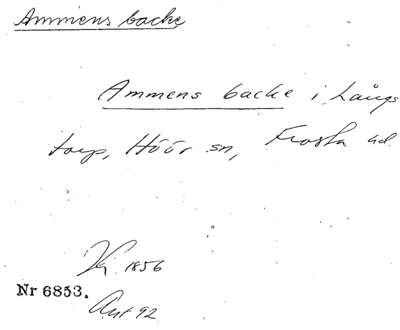 Ammens backe
Ammens backe i Långs
torp, Höör sn, Frosta hd.
1856
Nr 6853.
Ant 92